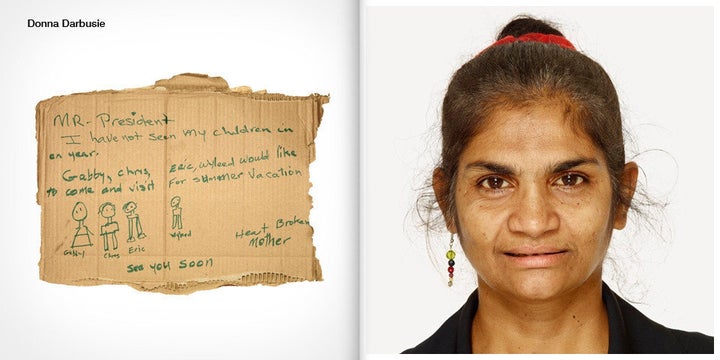 Donna Darbusie
MR- President
I have not seen my children in
an year.
Gabby, chris, Eric, Wyleed would like
to come and visit For summer vacation
Gabby Chris Eric Wyleed
Heart Broken
Mother
see you soon